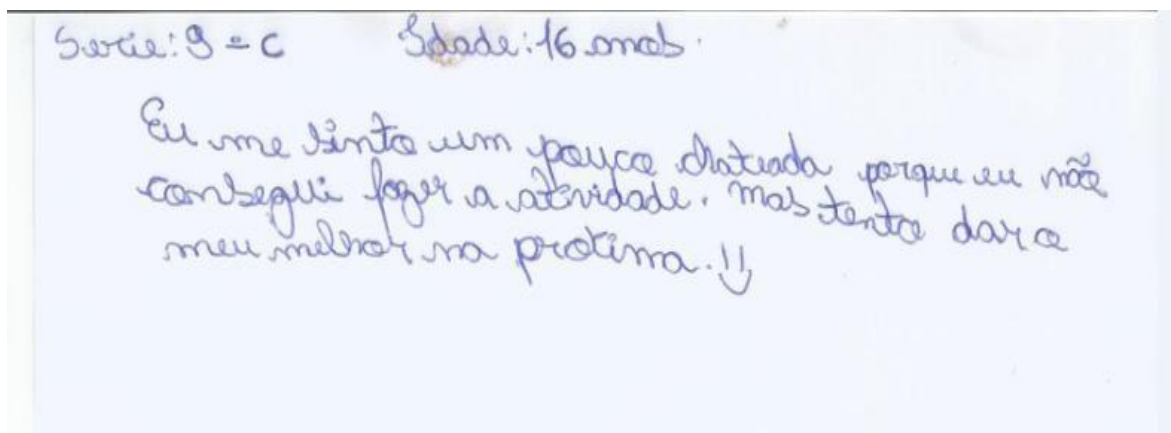 Serie: 9 = C Idade: 16 anos.
Eu me sinto um pouco chateada porque eu não
consegui fazer a atividade. mas tento dar o
meu melhor na protima. !!